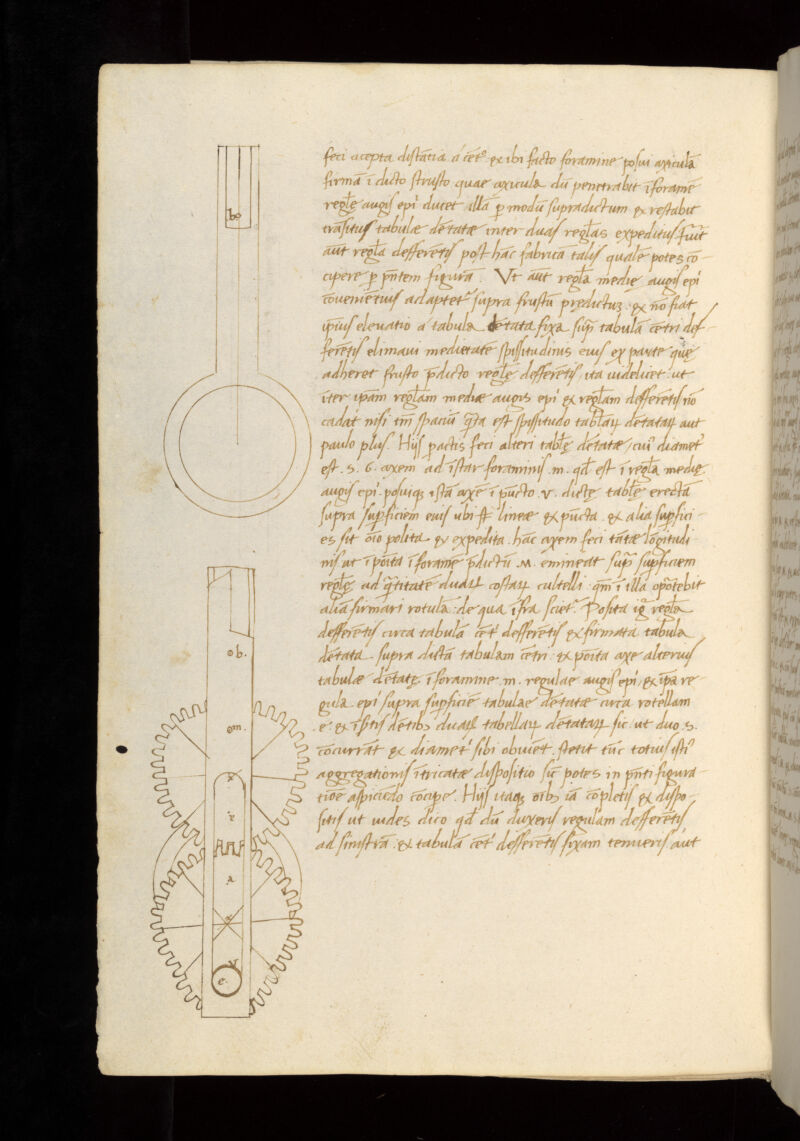 feci acepta distātia a cēt° et ibi facto foramine posui axiculā
firmā ī dicto frusto quae axicula dū penetrabit īforamē
regle augis epi ducet illā p modū supradictum et restabit
trāsitus tabulae dētatae inter duas reglas expeditus fuit
aūt regla defferētis post hāc fabricā talis qualē potes cō-
cipere p pntem figurā. Ut aūt regla medie augis epi
convenietius adaptetr supra frustū predictuz et nō fiat
ipsius elevatio a tabula dētata fixa supra tabulā cētri def-
ferētis elimavi medietatē spissitudinis eius ex parte que
adheret frusto pdicto regle defferētis ita videlicet ut
īter ipam reglam mediae augis epi et reglam defferētis nō
cadat nisi tm spaciū qta est spissitudo tablaꝝ dētataꝝ aut
paulo plus. Hijs pactis feci alteri table dētatae cui diametr
est .s. 6. axem ad īstar foraminis .m. qd est ī regla medie
augis epi. posuiqz istā axē ī pucto v. dicte table erectā
supra supficiem eius ubi st lineae et pucta. et alia supfici-
es sit oīo polita et expedita. hāc axem feci tātae lōgitudi-
nis ut ī poīta ī foramine pdictū .M. emineat supra supficiem
regle ad qtitatē duaꝝ costaꝝ cultelli qm ī illa oportebit
alia firmari rotula de qua īfra scietr. Posita igr regla
defferētis circa tabulā cēt defferētis et firmata tabula
dētata supra dictā tabulam cētri et poīta axe alterius
tabulae dētate ī foramine .m. regulae augis epi et ipa re-
gula epi supra supficiē tabulae dētatae circa rotellam
.e. et īsertis dētib3 duaꝝ tabellaꝝ dētataꝝ sic ut duo .s.
cōcurrāt et diametri sibi obviet stetit tūc totius isti
aggregationis ītricatae dispositio sic potes in pnti figura-
tiōe aspiciēdo cōcipe. Hijs itaqz oib3 iā cōpletis et dispo-
sitis ut vides dico qd dū duxeris regulam defferētis
ad sinistrā et tabulā cēt defferētis fixam tenueris aut
b.
b.
m.
v
r
A
v
e.